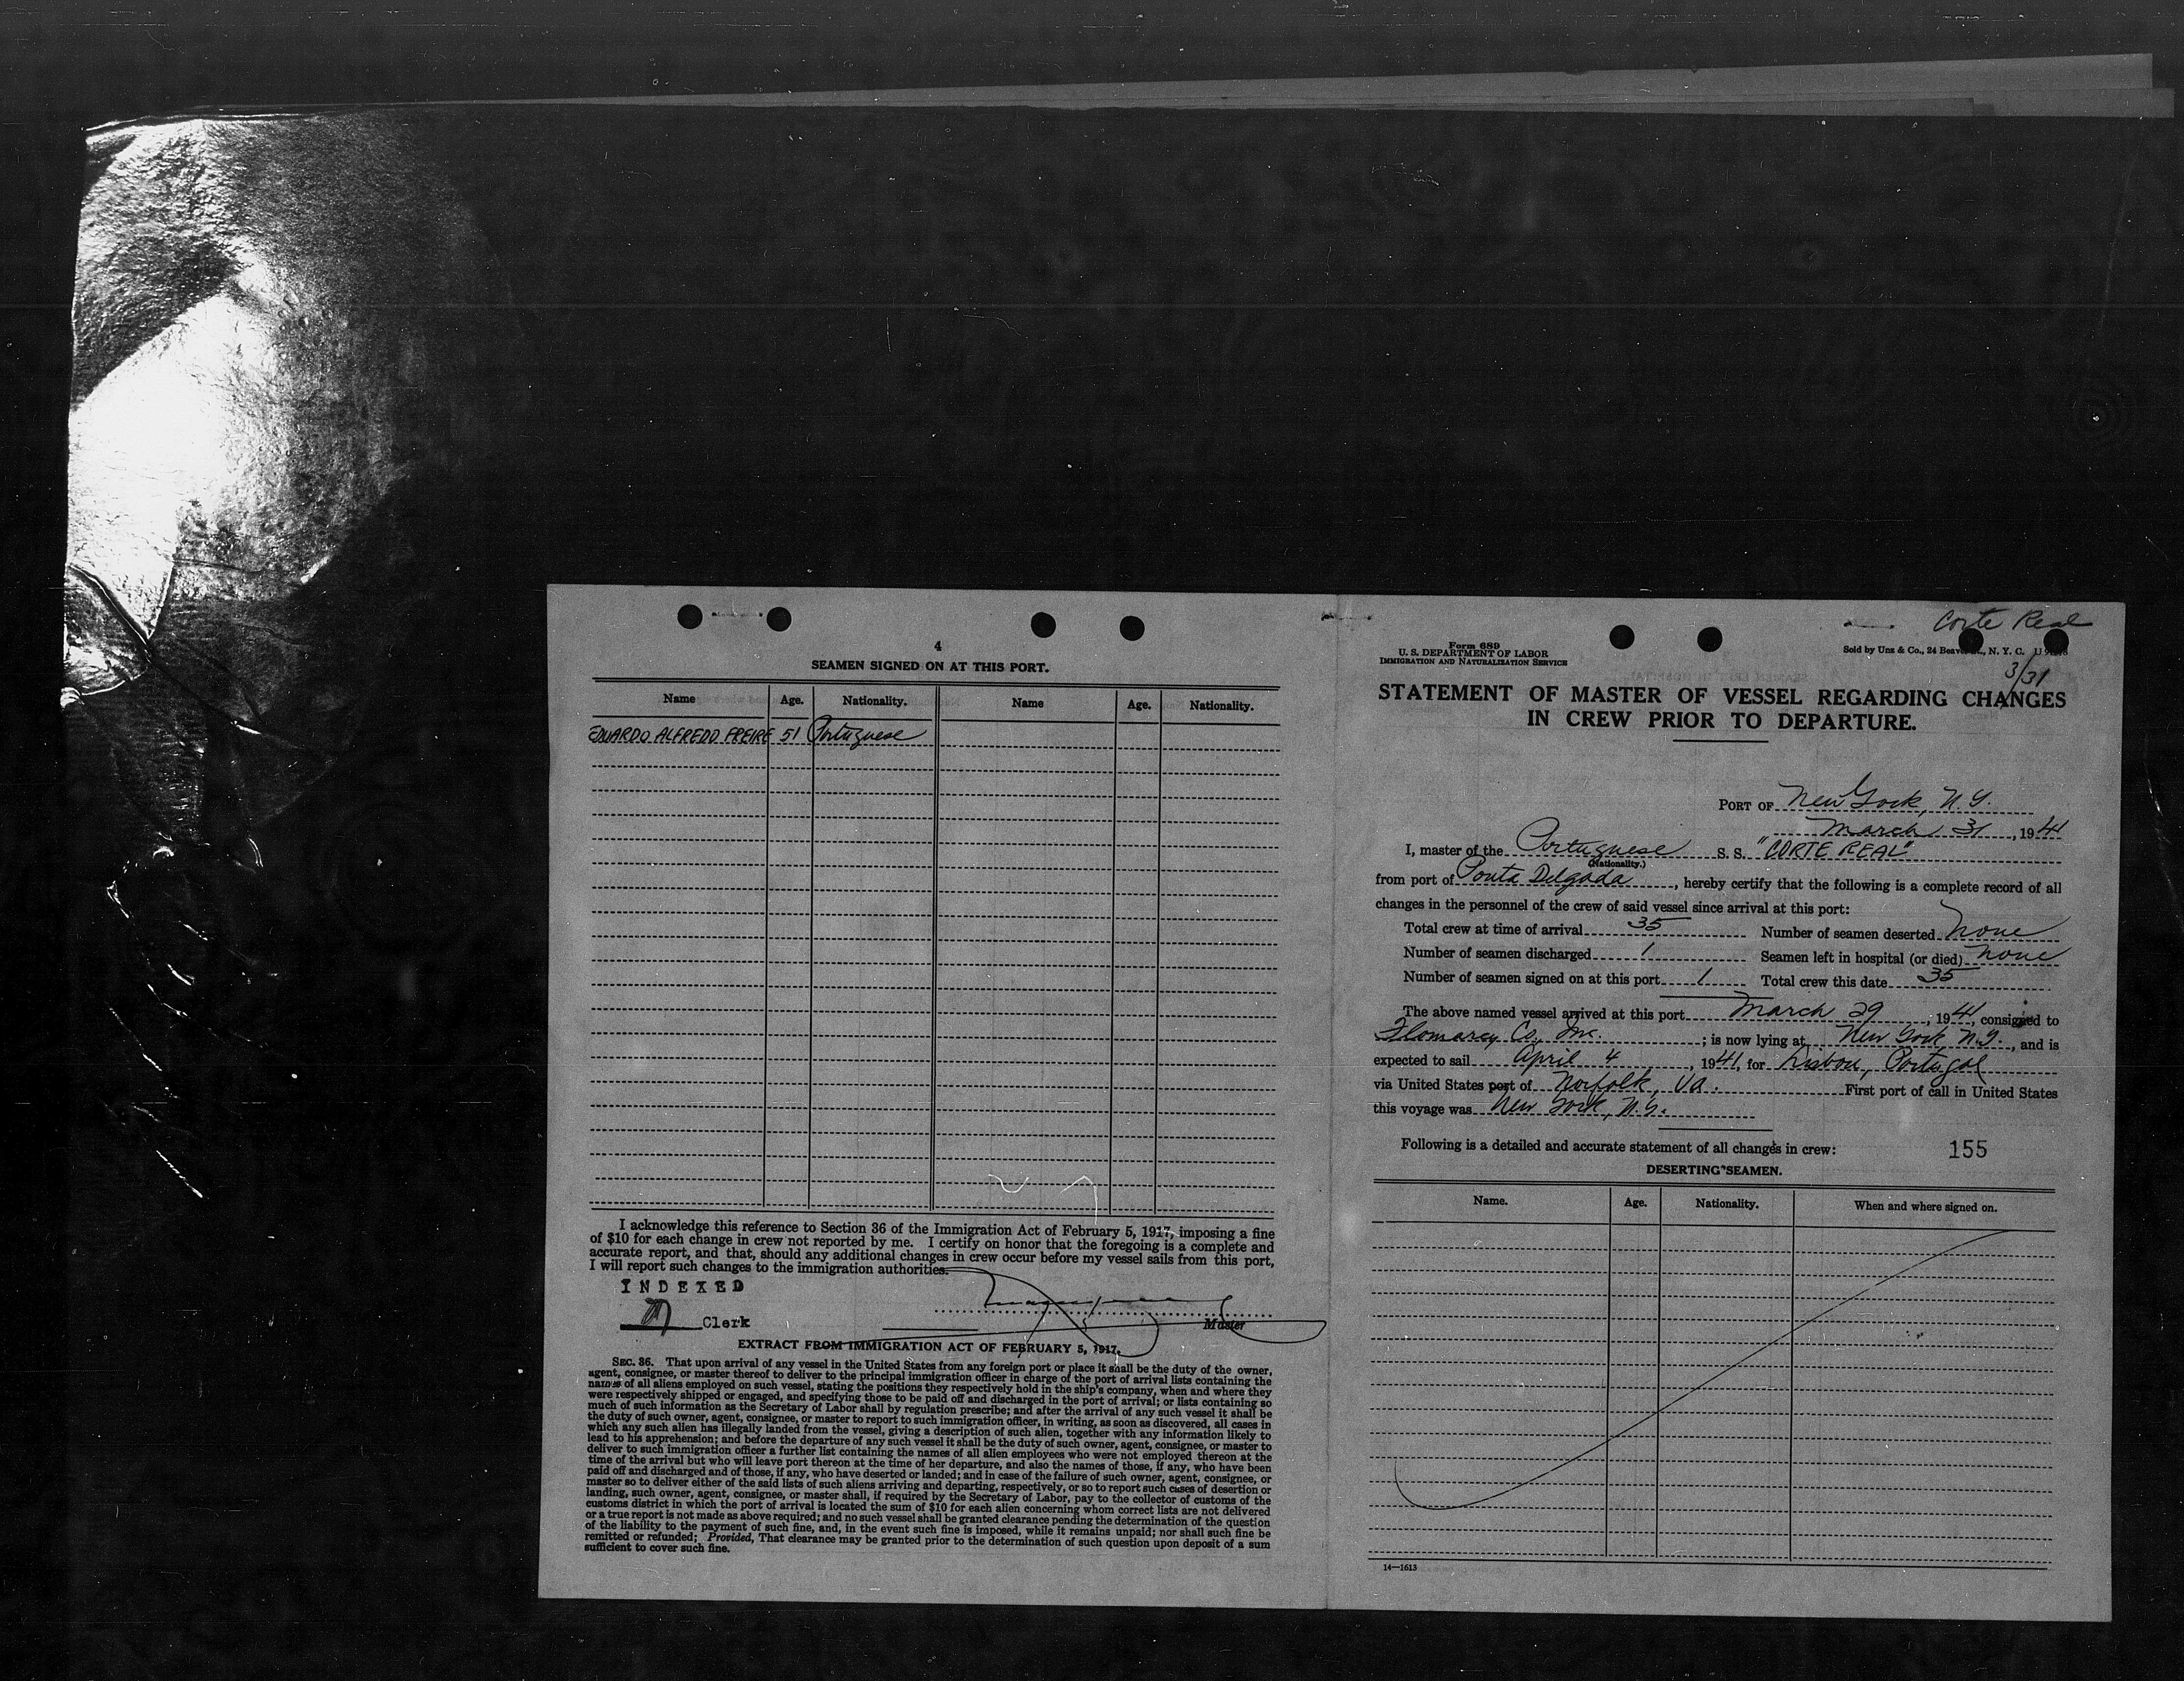 4
SEAMEN SIGNED ON AT THIS PORT.
Name Age. Nationality. Name Age. Nationality.
EDUARDO ALFREDO FREIRE 51 Portuguese
I acknowledge this reference to Section 36 of the Immigration Act of February 5, 1917, imposing a fine
of $10 for each change in crew not reported by me. I certify on honor that the foregoing is a complete and
accurate report, and that, should any additional changes in crew occur before my vessel sails from this port,
I will report such changes to the immigration authorities.
INDEXED
Clerk
Master
EXTRACT FROM IMMIGRATION ACT OF FEBRUARY 5, 1917.
SEC. 36. That upon arrival of any vessel in the United States from any foreign port or place it shall be the duty of the owner,
agent, consignee, or master thereof to deliver to the principal immigration officer in charge of the port of arrival lists containing the
names of all aliens employed on such vessel, stating the positions they respectively hold in the ship's company, when and where they
were respectively shipped or engaged, and specifying those to be paid off and discharged in the port of arrival; or lists containing so
much of such information as the Secretary of Labor shall by regulation prescribe; and after the arrival of any such vessel it shall be
the duty of such owner, agent, consignee, or master to report to such immigration officer, in writing, as soon as discovered, all cases in
which any such alien has illegally landed from the vessel, giving a description of such alien, together with any information likely to
lead to his apprehension; and before the departure of any such vessel it shall be the duty of such owner, agent, consignee, or master to
deliver to such immigration officer a further list containing the names of all alien employees who were not employed thereon at the
time of the arrival but who will leave port thereon at the time of her departure, and also the names of those, if any, who have been
paid off and discharged and of those, if any, who have deserted or landed; and in case of the failure of such owner, agent, consignee, or
master so to deliver either of the said lists of such aliens arriving and departing, respectively, or so to report such cases of desertion or
landing, such owner, agent, consignee, or master shall, if required by the Secretary of Labor, pay to the collector of customs of the
customs district in which the port of arrival is located the sum of $10 for each alien concerning whom correct lists are not delivered
or a true report is not made as above required; and no such vessel shall be granted clearance pending the determination of the question
of the liability to the payment of such fine, and, in the event such fine is imposed, while it remains unpaid; nor shall such fine be
remitted or refunded; Provided, That clearance may be granted prior to the determination of such question upon deposit of a sum
sufficient to cover such fine.
Corte Real
Form 689
U. S. DEPARTMENT OF LABOR
IMMIGRATION AND NATURALIZATION SERVICE
Sold by Unz & Co., 24 Beaver St., N. Y. C.
3/31
STATEMENT OF MASTER OF VESSEL REGARDING CHANGES
IN CREW PRIOR TO DEPARTURE.
PORT OF New York, N.Y.
March 31, 1941
I, master of the Portuguese S. S. "CORTE REAL"
(Nationality.)
from port of Ponta Delgada, hereby certify that the following is a complete record of all
changes in the personnel of the crew of said vessel since arrival at this port:
Total crew at time of arrival 35 Number of seamen deserted None
Number of seamen discharged 1 Seamen left in hospital (or died) None
Number of seamen signed on at this port 1 Total crew this date 35
The above named vessel arrived at this port March 29, 1941, consigned to
Flomarcy Co., Inc.; is now lying at New York, N.Y., and is
expected to sail April 4, 1941, for Lisbon, Portugal
via United States port of Norfolk, Va. First port of call in United States
this voyage was New York, N.Y.
Following is a detailed and accurate statement of all changes in crew: 155
DESERTING SEAMEN.
Name. Age. Nationality. When and where signed on.
14—1613